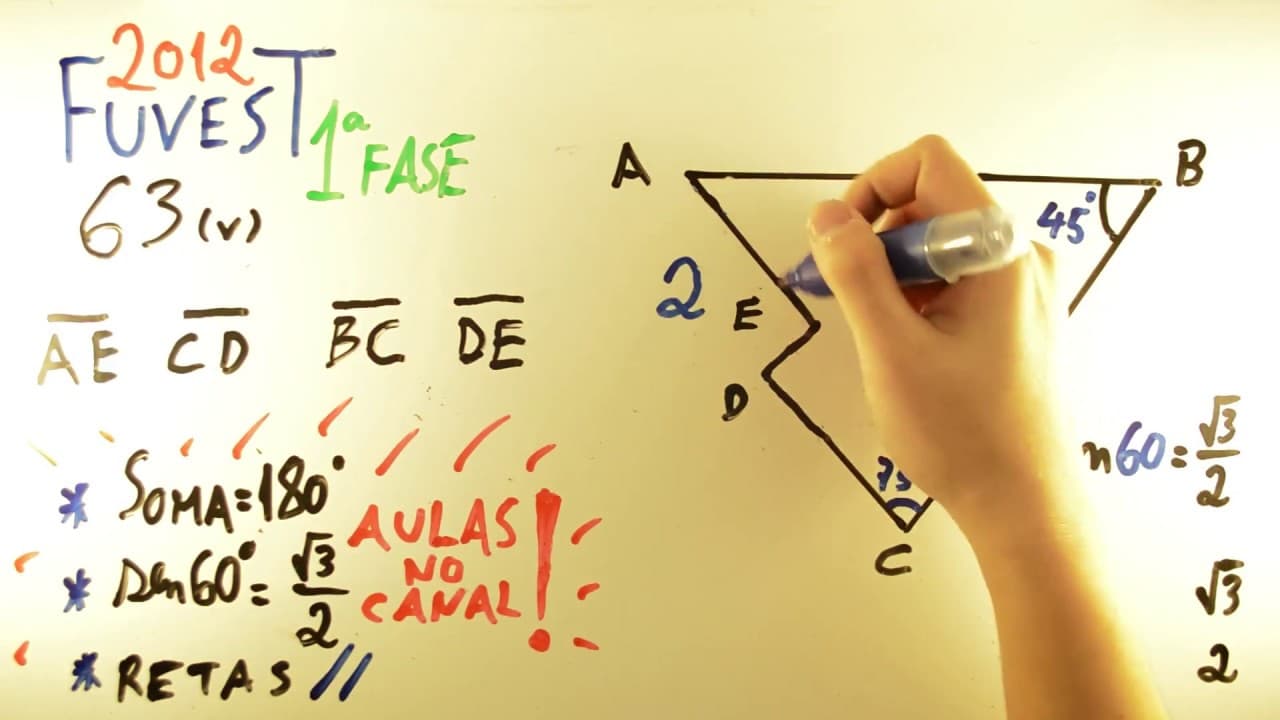 2012
FUVEST
1ª FASE
63 (V)
AE CD BC DE
* SOMA=180°
* sen60°= √3/2
* RETAS //
AULAS
NO
CANAL!
A
B
45°
2
E
D
C
n60=√3/2
√3
2